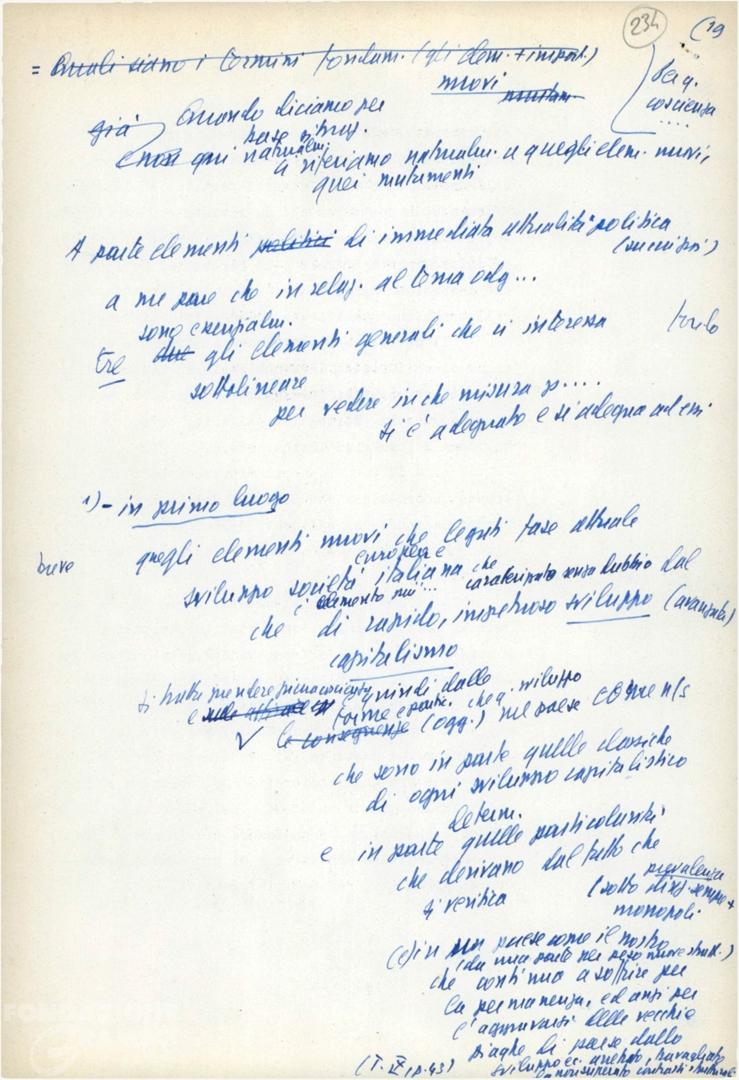 234
(19
= Quali siano i termini fondam. (gli elem. + import.)
nuovi
coscienza
....
già Quando diciamo per
non qui naturalm.
ci riferiamo naturalm. a quegli elem. nuovi,
quei mutamenti
A parte elementi politici di immediata attualità politica
a me pare che in relaz. al tema odg...
sono essenzialm.
tre due gli elementi generali che ci interessa
sottolineare
per vedere in che misura p....
si è adeguato e si adegua ad essi
1) - in primo luogo
breve
quegli elementi nuovi che legati fase attuale
europea e
sviluppo società italiana che
è elemento caratterizzato senza dubbio dal
che di rapido, impetuoso sviluppo (avanzata)
capitalismo
si tratta prendere piena coscienza quindi dalle
e forme e che q. sviluppo
le conseguenze (ogg.) nel paese
che sono in parte quelle classiche
di ogni sviluppo capitalistico
determ.
e in parte quelle particolarità
che derivano dal fatto che
si verifica
prevalenza
(sotto sempre +
monopoli
(e) in un paese come il nostro
(da una parte per peso nuove strutt.)
che continua a soffrire per
la permanenza, ed anzi per
l'aggravarsi delle vecchie
piaghe di paese dallo
sviluppo ec. arretrato, travagliato
da non superati contrasti strutturali
(T. X, p. 43)